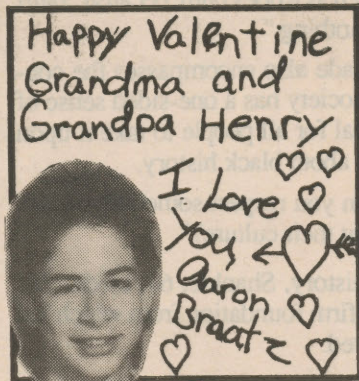 Happy Valentine
Grandma and
Grandpa Henry
I Love
You,
Aaron
Braatz